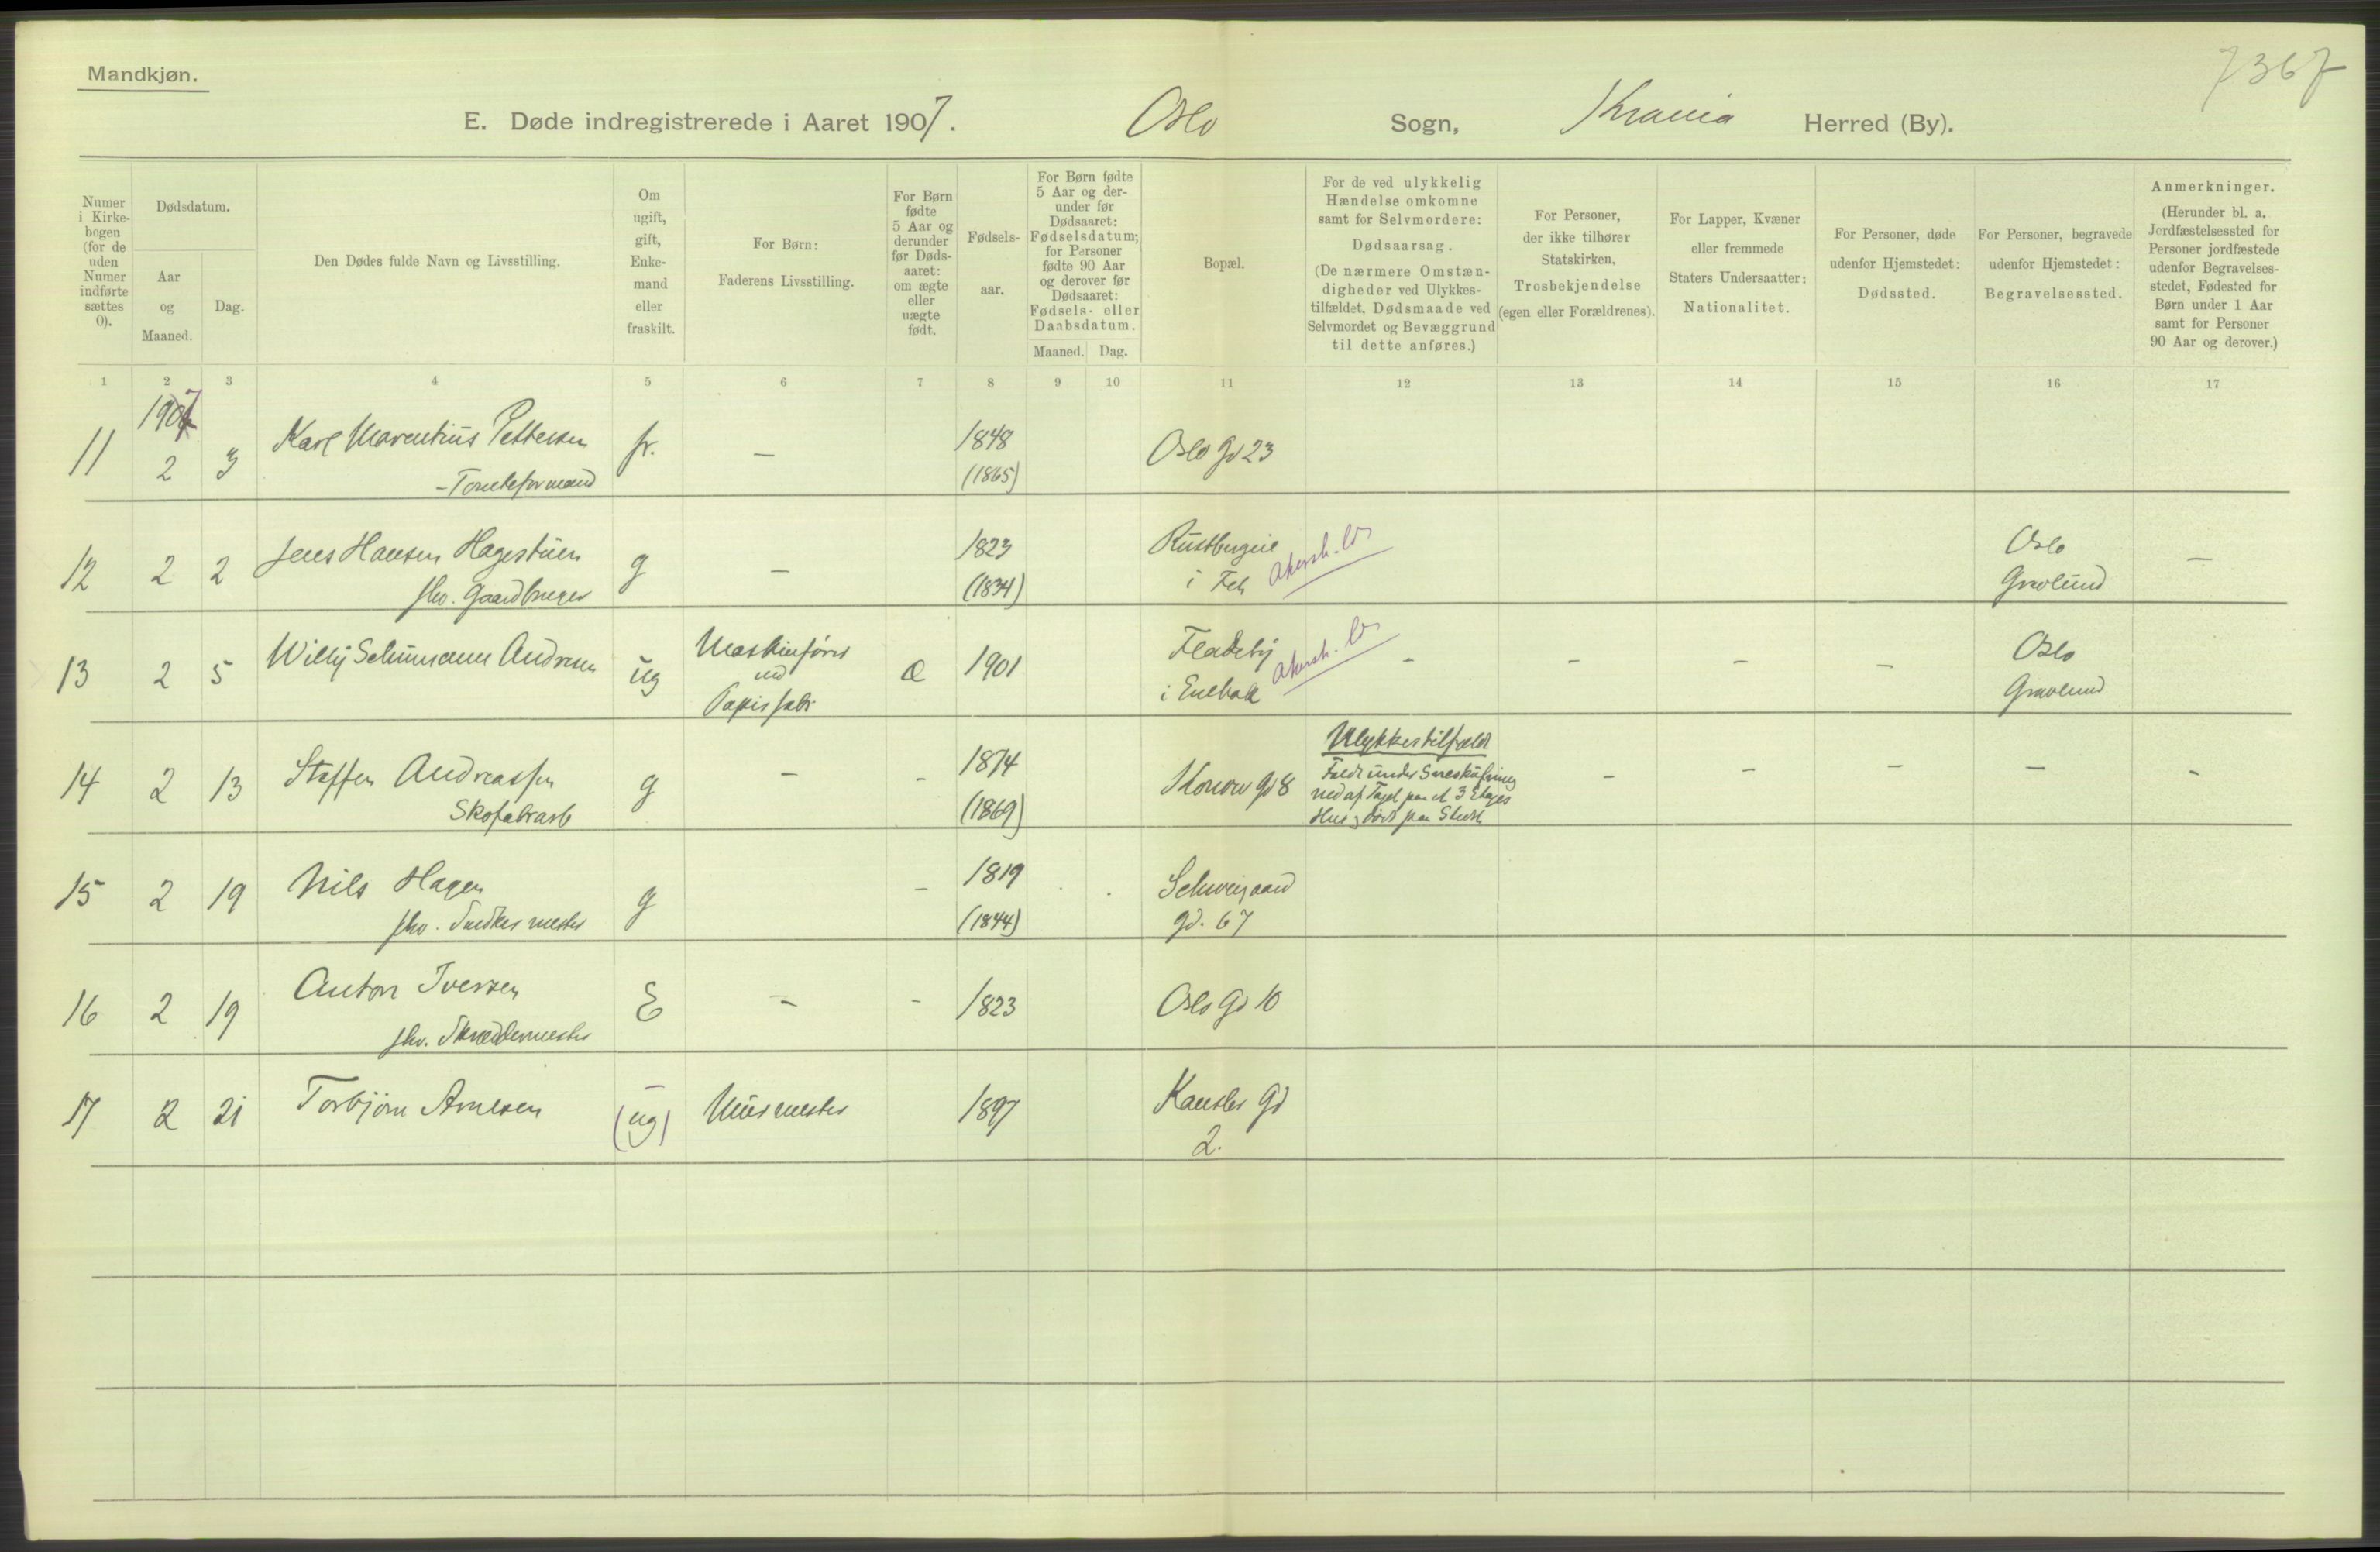 Mandkjøn.
7367
E. Døde indregistrerede i Aaret 1907. Oslo Sogn, Krania Herred (By).
Numer i Kirkebogen (for de uden Numer indførte sættes 0).
Dødsdatum.
Aar og Maaned.
Dag.
Den Dødes fulde Navn og Livsstilling.
Om ugift, gift, Enkemand eller fraskilt.
For Børn: Faderens Livsstilling.
For Børn fødte 5 Aar og derunder før Dødsaaret: om ægte eller uægte født.
Fødselsaar.
For Børn fødte 5 Aar og derunder før Dødsaaret: Fødselsdatum; for Personer fødte 90 Aar og derover før Dødsaaret: Fødsels- eller Daabsdatum.
Maaned. Dag.
Bopæl.
For de ved ulykkelig Hændelse omkomne samt for Selvmordere: Dødsaarsag. (De nærmere Omstændigheder ved Ulykkestilfældet, Dødsmaade ved Selvmordet og Bevæggrund til dette anføres.)
For Personer, der ikke tilhører Statskirken, Trosbekjendelse (egen eller Forældrenes).
For Lapper, Kvæner eller fremmede Staters Undersaatter: Nationalitet.
For Personer, døde udenfor Hjemstedet: Dødssted.
For Personer, begravede udenfor Hjemstedet: Begravelsessted.
Anmerkninger. (Herunder bl. a. Jordfæstelsessted for Personer jordfæstede udenfor Begravelsesstedet, Fødested for Børn under 1 Aar samt for Personer 90 Aar og derover.)
1 2 3 4 5 6 7 8 9 10 11 12 13 14 15 16 17
1907
11 2 3 Karl Marentius Pettersen fr. – 1848 Oslo Gd 23
– Tomteformand (1865)
12 2 2 Jens Hansen Hagestuen g – 1823 Rustbergeie Akersh. Oslo –
fhv. Gaardbruger (1834) i Feh Gravlund
13 2 5 Willy Schumann Andresen ug Maskinfører 1901 Fladeby Akersh. – – – – Oslo
ved i Enebak Gravlund
Papirfabr
14 2 13 Steffen Andreassen g – – 1874 Konow Gd 8 Ulykkestilfælde – – – – –
Skofabrarb (1869) Faldt under Sneskufning
ned af Taget paa et 3 Etages
Hus, døde paa Stedet
15 2 19 Nils Hagen g – 1819 Schweigaard
fhv. Snedkermester (1844) gd. 67
16 2 19 Anton Iversen E – – 1823 Oslo Gd 10
fhv. Skreddermester
17 2 21 Torbjørn Arnesen (ug) Murmester 1897 Kansler Gd
2.